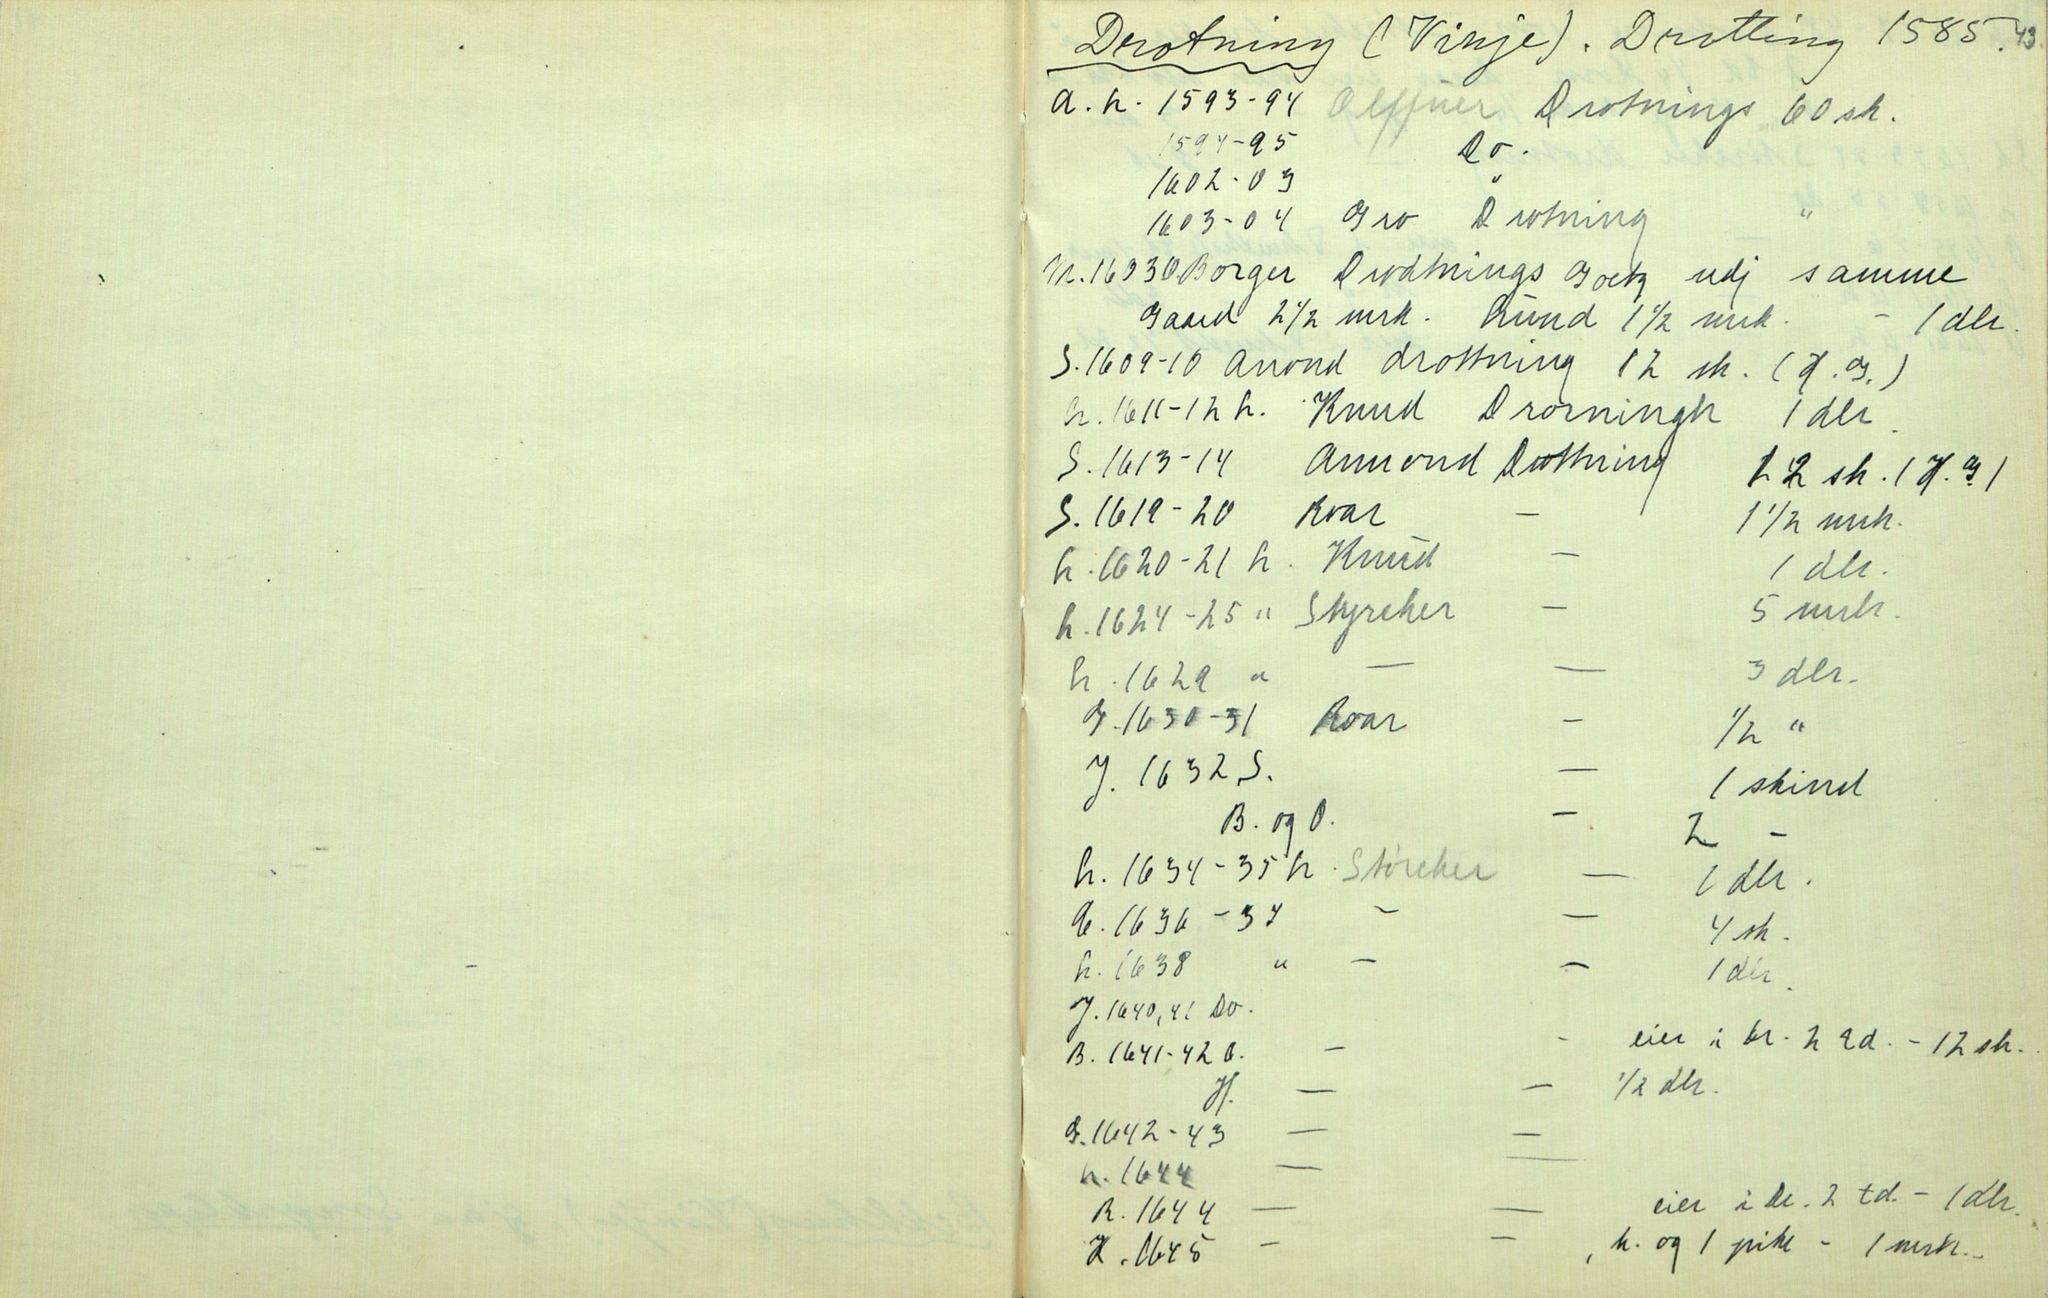 Drotning (Vinje). Drotting 1585. 43.
a. h. 1593-94 Olffuer Drotnings 60 sk.
1594-95 Do.
1602-03 "
1603-04 Gro Drotning "
1603 Borger Drodtnings godtz udj samme
gaard 2 1/2 mrk. Kund 1 1/2 mrk. - 1 dlr.
S. 1609-10 Anond drottning 12 sk. (H. G.)
h. 1611-12 h. Knud Drorningh 1 dlr.
S. 1613-14 Anmond Drottning 12 sk. (H. G)
S. 1619-20 Roar - 1 1/2 mrk.
h. 1620-21 h. Knud - 1 dlr.
h. 1624-25 " Styrcker - 5 mrk.
h. 1629 " - - 3 dlr.
G. 1630-31 Roar - 1/2 "
J. 1632 S. - 1 skind
B. og O. - 2 -
h. 1634-35 h. Störcker - 1 dlr.
1636-37 - - 4 sk.
h. 1638 " - - 1 dlr.
J. 1640, 41 Do.
B. 1641-42 O. - - eier i Dr. 2 td. - 12 sk.
H. - - 1/2 dlr.
G. 1642-43 - -
h. 1644 - -
R. 1644 - - eier i Dr. 2 td. - 1 dlr.
K. 1645 - - , k. og 1 pike - 1 mrk.